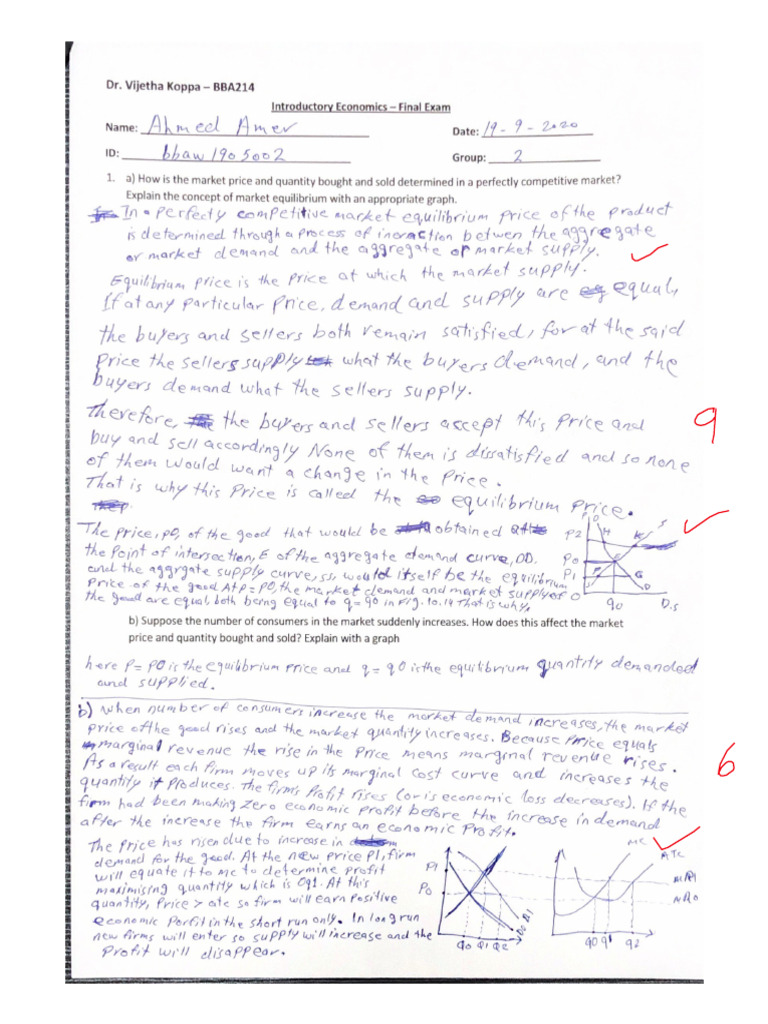 Dr. Vijetha Koppa – BBA214
Introductory Economics – Final Exam
Name: Ahmed Amer Date: 19-9-2020
ID: bbaw1905002 Group: 2
1. a) How is the market price and quantity bought and sold determined in a perfectly competitive market?
Explain the concept of market equilibrium with an appropriate graph.
In perfecty competitive market equilibrium price of the product
is determined through a process of ineraction betwen the aggregate
or market demand and the aggregate or market supply.
Equilibrium price is the price at which the market supply.
If at any particular price, demand and supply are equal,
the buyers and sellers both remain satisfied, for at the said
price the sellers supply what the buyers demand, and the
buyers demand what the sellers supply.
Therefore, the buyers and sellers accept this price and
buy and sell accordingly None of them is dissatisfied and so none
of them would want a change in the price.
That is why this price is called the equilibrium price.
9
The price, p0, of the good that would be obtained at
the point of intersection, E of the aggregate demand curve, DD.
and the aggrgate supply curve, ss, would itself be the equilibrium
price of the good At p = p0, the market demand and market supply of
the good are equal, both being equal to q = q0 in Fig. 10.14 That is why,
P2 H K S
P0 E
P1 F G
O q0 D D.S
b) Suppose the number of consumers in the market suddenly increases. How does this affect the market
price and quantity bought and sold? Explain with a graph
here p = p0 is the equilibrium price and q = q0 is the equilibrium quantity demanded
and supplied.
b) when number of consumers increase the market demand increases, the market
price of the good rises and the market quantity increases. Because price equals
marginal revenue the rise in the price means marginal revenue rises.
As a result each firm moves up its marginal cost curve and increases the
quantity it produces. The firm's profit rises (or is economic loss decreases). If the
firm had been making zero economic profit before the increase in demand
after the increase the firm earns an economic profit.
6
The price has risen due to increase in
demand for the good. At the new price P1, firm
will equate it to mc to determine profit
maximising quantity which is Oq1. At this
quantity, price > atc so firm will earn positive
economic Porfit in the short run only. In long run
new firms will enter so supply will increase and the
profit will disappear.
P1
P0
D0 D1
q0 q1 q2
MC
ATC
q0 q1 q2